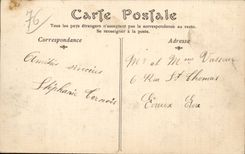 76
Carte Postale
Tous les pays étrangers n'acceptent pas la correspondance au recto.
Se renseigner à la poste.
Correspondance
Adresse
Amitiés sincères
Stéphanie
Mr et Mme
6 Rue St Thomas
Evreux Eure